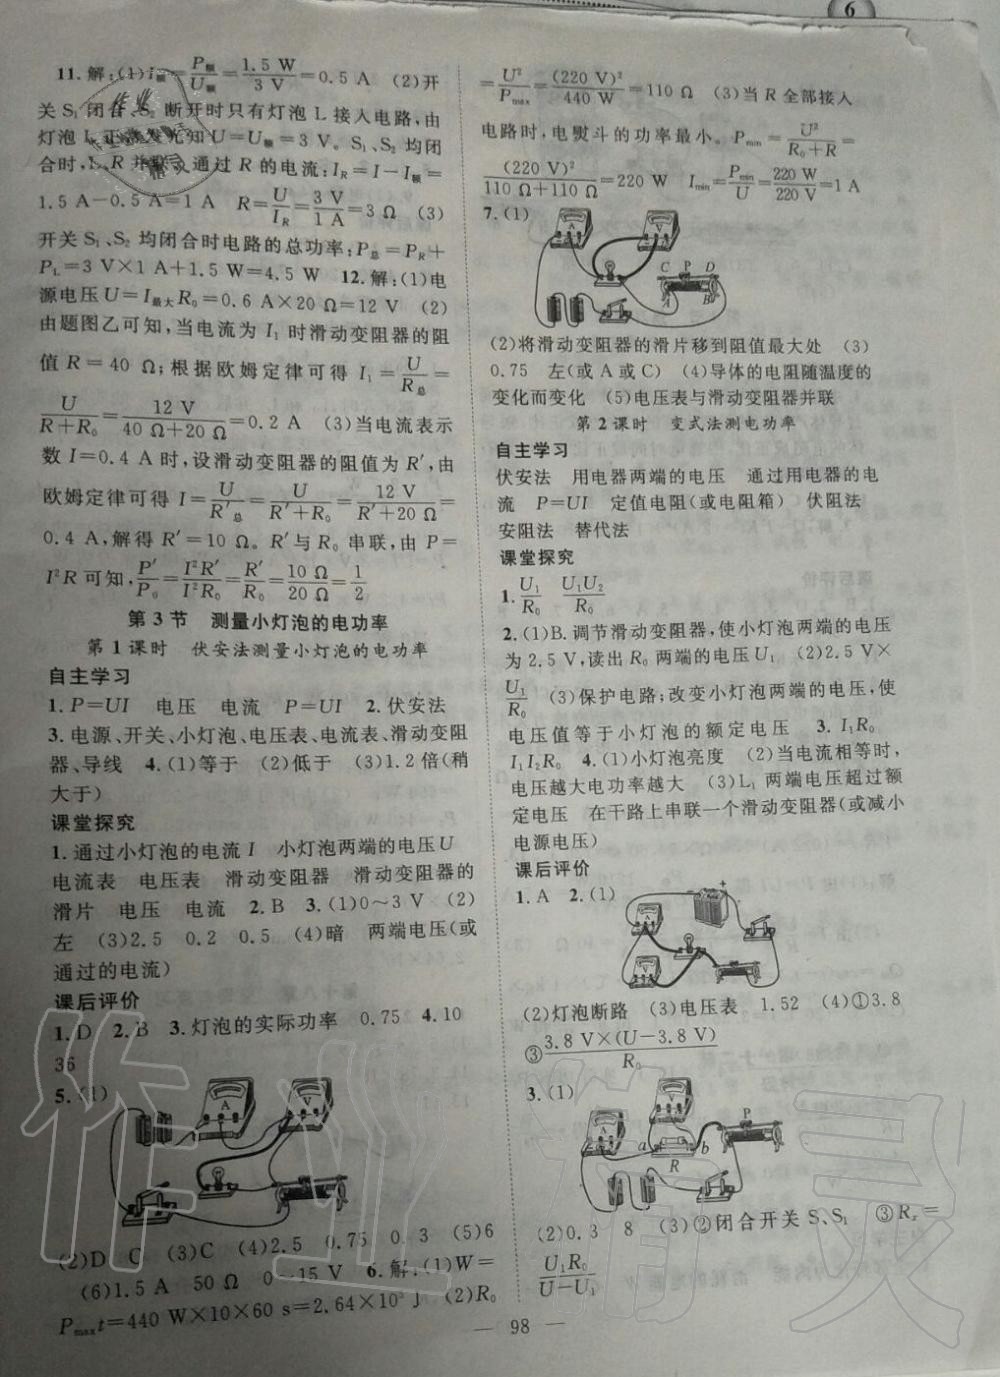 6
11.解:(1)I额=P额/U额=1.5 W/3 V=0.5 A (2)开
关 S₁ 闭合、S₂ 断开时只有灯泡 L 接入电路,由
灯泡 L 正常发光知 U=U额=3 V。S₁、S₂ 均闭
合时,L、R 并联,通过 R 的电流:I_R=I-I额=
1.5 A-0.5 A=1 A R=U/I_R=3 V/1 A=3 Ω (3)
开关 S₁、S₂ 均闭合时电路的总功率:P总=P_R+
P_L=3 V×1 A+1.5 W=4.5 W 12.解:(1)电
源电压 U=I最大R₀=0.6 A×20 Ω=12 V (2)
由题图乙可知,当电流为 I₁ 时滑动变阻器的阻
值 R=40 Ω;根据欧姆定律可得 I₁=U/R总=
U/(R+R₀)=12 V/(40 Ω+20 Ω)=0.2 A (3)当电流表示
数 I=0.4 A 时,设滑动变阻器的阻值为 R′,由
欧姆定律可得 I=U/R′总=U/(R′+R₀)=12 V/(R′+20 Ω)=
0.4 A,解得 R′=10 Ω。R′与 R₀ 串联,由 P=
I²R 可知,P′/P₀=I²R′/I²R₀=R′/R₀=10 Ω/20 Ω=1/2
第 3 节 测量小灯泡的电功率
第 1 课时 伏安法测量小灯泡的电功率
自主学习
1.P=UI 电压 电流 P=UI 2.伏安法
3.电源、开关、小灯泡、电压表、电流表、滑动变阻
器、导线 4.(1)等于 (2)低于 (3)1.2 倍(稍
大于)
课堂探究
1.通过小灯泡的电流 I 小灯泡两端的电压 U
电流表 电压表 滑动变阻器 滑动变阻器的
滑片 电压 电流 2.B 3.(1)0～3 V (2)
左 (3)2.5 0.2 0.5 (4)暗 两端电压(或
通过的电流)
课后评价
1.D 2.B 3.灯泡的实际功率 0.75 4.10
36
5.(1)
A
V
(2)D C (3)C (4)2.5 0.75 0.3 (5)6
(6)1.5 A 50 Ω 0～15 V 6.解:(1)W=
P_max t=440 W×10×60 s=2.64×10⁵ J (2)R₀
=U²/P_max=(220 V)²/440 W=110 Ω (3)当 R 全部接入
电路时,电熨斗的功率最小。P_min=U²/(R₀+R)=
(220 V)²/(110 Ω+110 Ω)=220 W I_min=P_min/U=220 W/220 V=1 A
7.(1)
A
V
C P D
A B
(2)将滑动变阻器的滑片移到阻值最大处 (3)
0.75 左(或 A 或 C) (4)导体的电阻随温度的
变化而变化 (5)电压表与滑动变阻器并联
第 2 课时 变式法测电功率
自主学习
伏安法 用电器两端的电压 通过用电器的电
流 P=UI 定值电阻(或电阻箱) 伏阻法
安阻法 替代法
课堂探究
1.U₁/R₀ U₁U₂/R₀
2.(1)B.调节滑动变阻器,使小灯泡两端的电压
为 2.5 V,读出 R₀ 两端的电压 U₁ (2)2.5 V×
U₁/R₀ (3)保护电路;改变小灯泡两端的电压,使
电压值等于小灯泡的额定电压 3.I₁R₀
I₁I₂R₀ 4.(1)小灯泡亮度 (2)当电流相等时,
电压越大电功率越大 (3)L₁ 两端电压超过额
定电压 在干路上串联一个滑动变阻器(或减小
电源电压)
课后评价
1.A 2.(1)
A
V
(2)灯泡断路 (3)电压表 1.52 (4)①3.8
③3.8 V×(U-3.8 V)/R₀
3.(1)
A
V
P
a b
R
(2)0.3 8 (3)②闭合开关 S、S₁ ③Rₓ=
U₁R₀/(U-U₁)
— 98 —
作业精灵